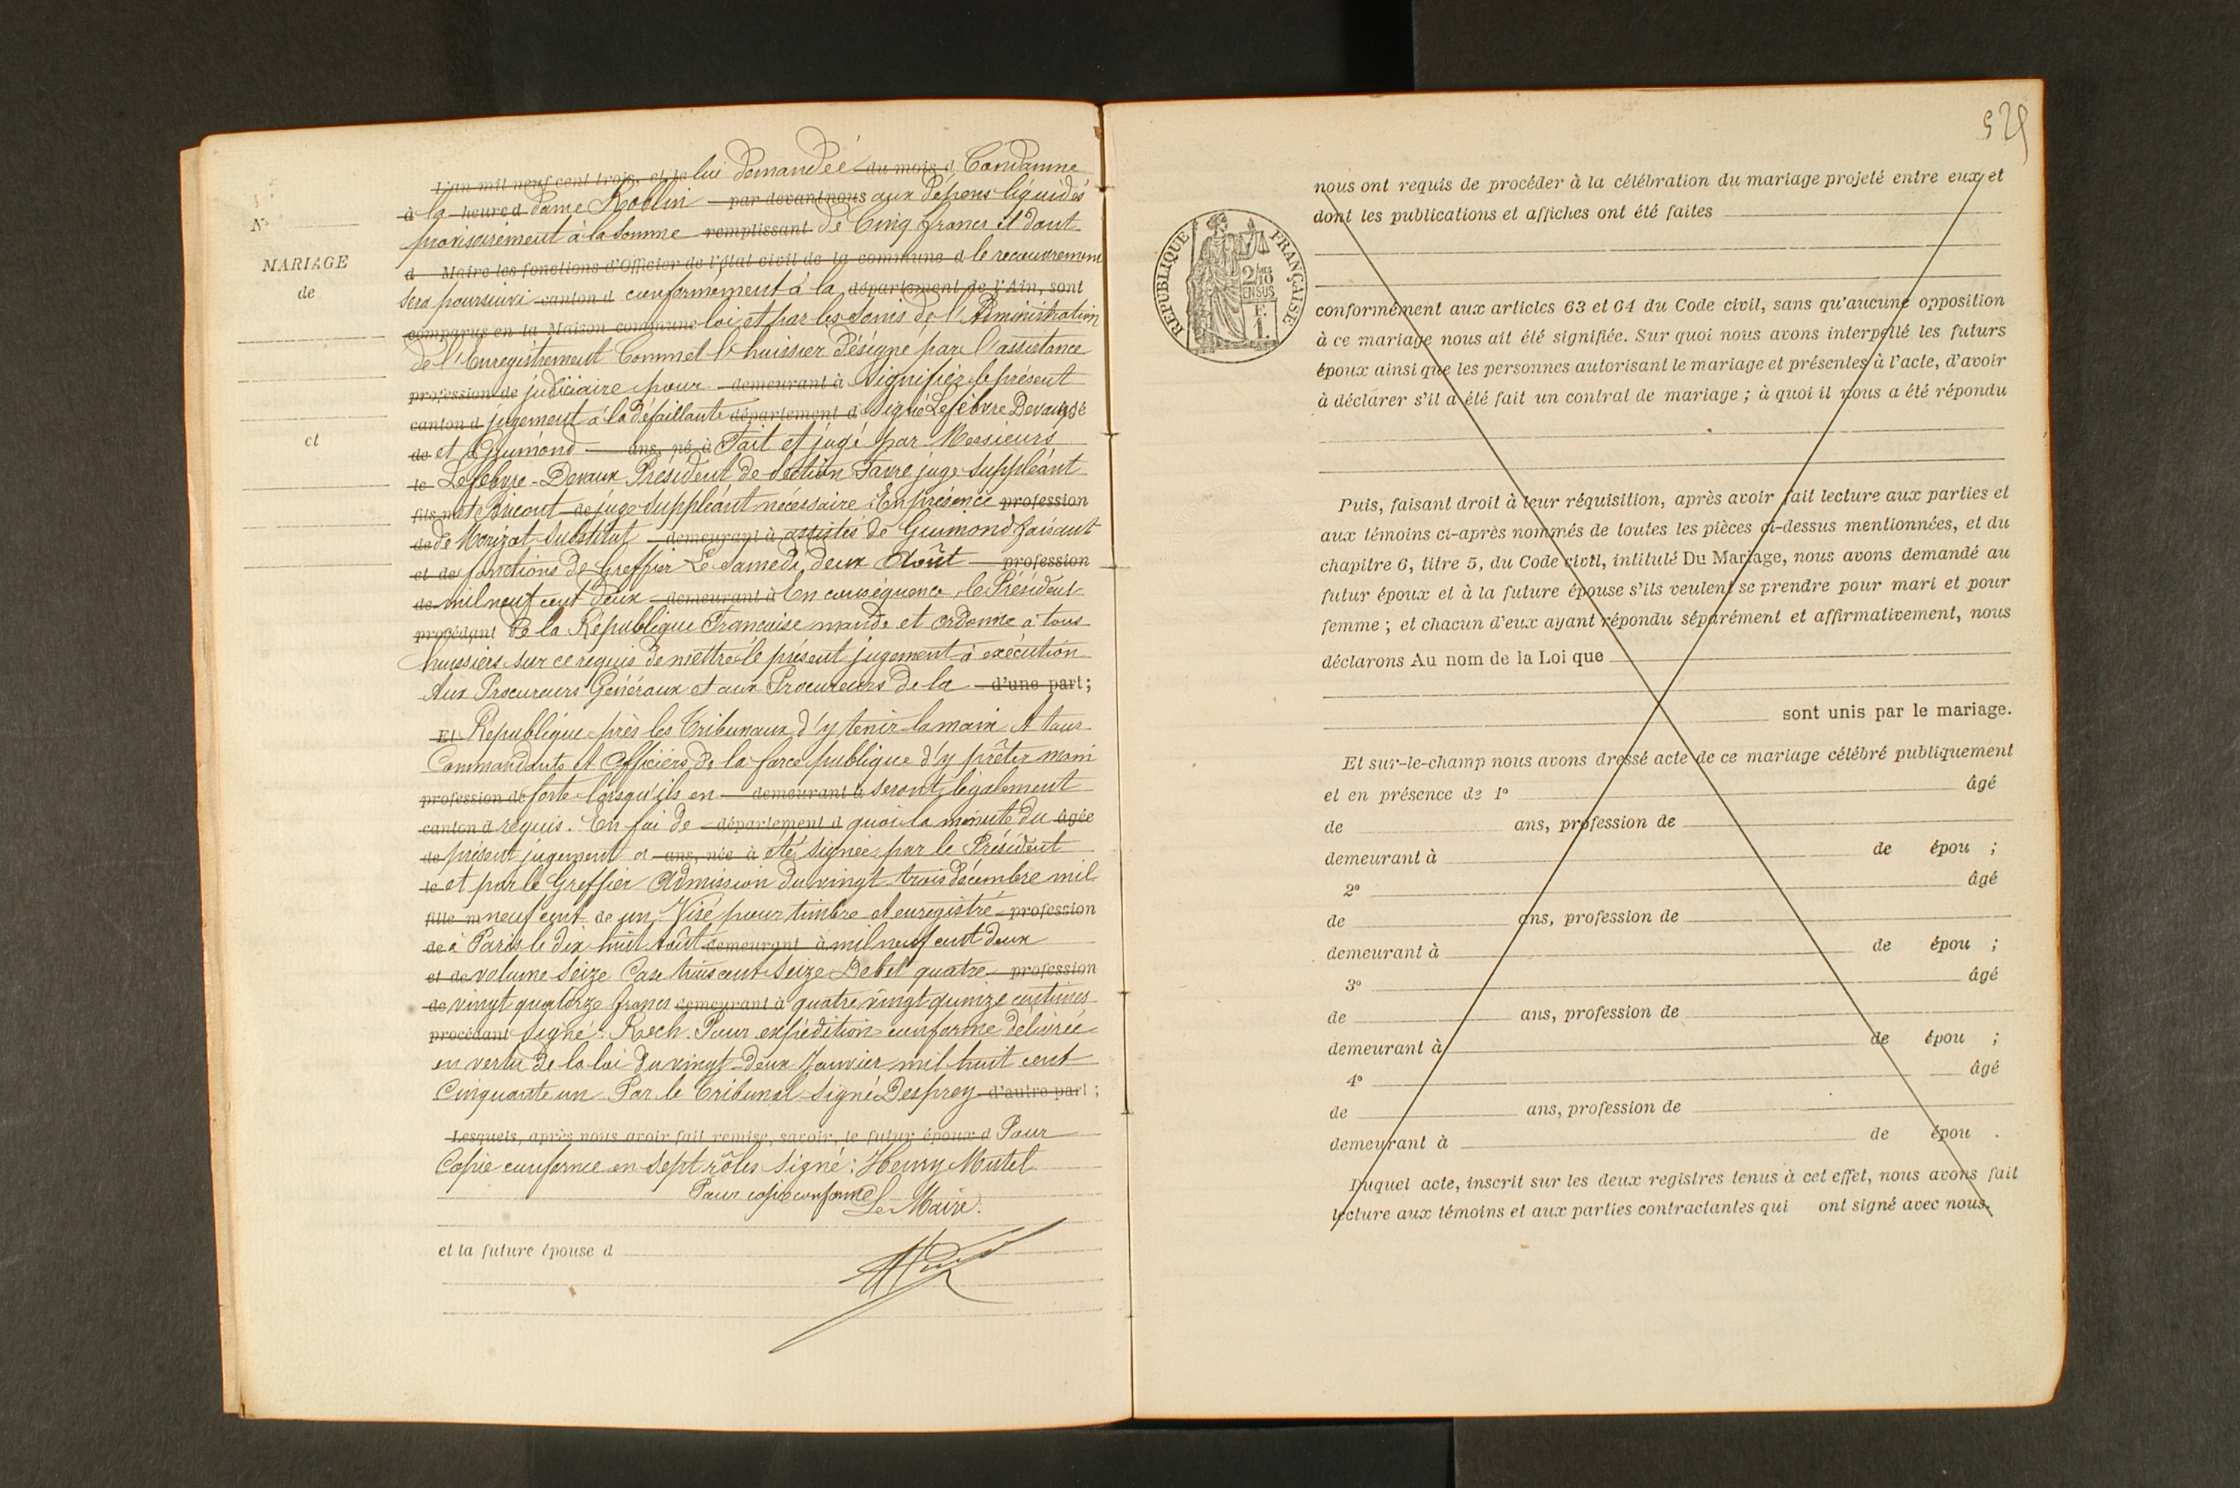 N°
MARIAGE
de
et
L'an mil neuf cent trois, et le lui demandée du mois d Condamne
à la heure d dame Roblin par devant nous aux dépens liquidés
provisoirement à la somme remplissant de Cinq francs et dont
d Maire les fonctions d'Officier de l'état civil de la commune d le recouvrement
sera poursuivi canton d conformément à la département de l'Ain, sont
comparus en la Maison commune loi et par les soins de l'Administration
de l'Enregistrement Commet l'huissier désigné par l'assistance
profession de judiciaire pour demeurant à signifier le présent
canton d jugement à la défaillante département d signé Lefebvre Devaux
de et Guimond ans, né à Fait et jugé par Messieurs
le Lefebvre-Devaux Président de section Favre juge suppléant
fils m et Bricout de juge suppléant nécessaire En présence profession
de de Morizot Substitut demeurant à assistés de Guimond faisant
et de fonctions de Greffier Le Samedi deux Août profession
de mil neuf cent deux demeurant à En conséquence le Président
procédant de la République Française mande et ordonne à tous
huissiers sur ce requis de mettre le présent jugement à exécution
Aux Procureurs Généraux et aux Procureurs de la d'une part;
Et République près les Tribunaux d'y tenir la main A tous
Commandants et Officiers de la force publique d'y prêter main
profession de forte lorsqu'ils en demeurant à seront légalement
canton d requis. En foi de département d quoi la minute du âgée
de présent jugement a ans, née à été signée par le Président
le et par le Greffier Admission du vingt trois décembre mil
fille m neuf cent de un Visé pour timbre et enregistré profession
de à Paris le dix huit août demeurant à mil neuf cent deux
et de volume seize Case trois cent seize Debet quatre profession
de vingt quatorze francs demeurant à quatre vingt quinze centimes
procédant signé: Roch. Pour expédition conforme délivrée
en vertu de la loi du vingt-deux Janvier mil huit cent
Cinquante un Par le Tribunal signé Desprey d'autre part;
Lesquels, après nous avoir fait remise, savoir, le futur époux d Pour
Copie conforme en sept rôles signé: Henry Mutel
Pour copie conforme
Le Maire.
et la future épouse d
525
RÉPUBLIQUE FRANÇAISE
2/10
EN SUS
F.
1.
nous ont requis de procéder à la célébration du mariage projeté entre eux et
dont les publications et affiches ont été faites
conformément aux articles 63 et 64 du Code civil, sans qu'aucune opposition
à ce mariage nous ait été signifiée. Sur quoi nous avons interpellé les futurs
époux ainsi que les personnes autorisant le mariage et présentes à l'acte, d'avoir
à déclarer s'il a été fait un contrat de mariage ; à quoi il nous a été répondu
Puis, faisant droit à leur réquisition, après avoir fait lecture aux parties et
aux témoins ci-après nommés de toutes les pièces ci-dessus mentionnées, et du
chapitre 6, titre 5, du Code civil, intitulé Du Mariage, nous avons demandé au
futur époux et à la future épouse s'ils veulent se prendre pour mari et pour
femme ; et chacun d'eux ayant répondu séparément et affirmativement, nous
déclarons Au nom de la Loi que
sont unis par le mariage.
Et sur-le-champ nous avons dressé acte de ce mariage célébré publiquement
et en présence de 1° âgé
de ans, profession de
demeurant à de épou ;
2° âgé
de ans, profession de
demeurant à de épou ;
3° âgé
de ans, profession de
demeurant à de épou ;
4° âgé
de ans, profession de
demeurant à de épou .
Duquel acte, inscrit sur les deux registres tenus à cet effet, nous avons fait
lecture aux témoins et aux parties contractantes qui ont signé avec nous.